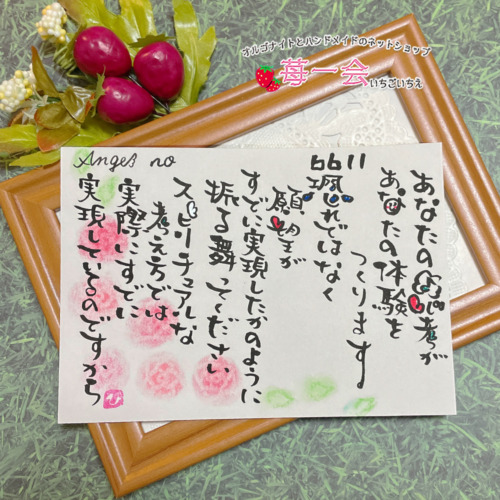 オルゴナイトとハンドメイドのネットショップ
苺一会
いちごいちえ
Angel no
あなたの思考が
あなたの体験を
つくります
れではなく
願望が
すでに実現したかのように
振る舞ってください
スピリチュアルな
考え方では
実際にすでに
実現しているのですから